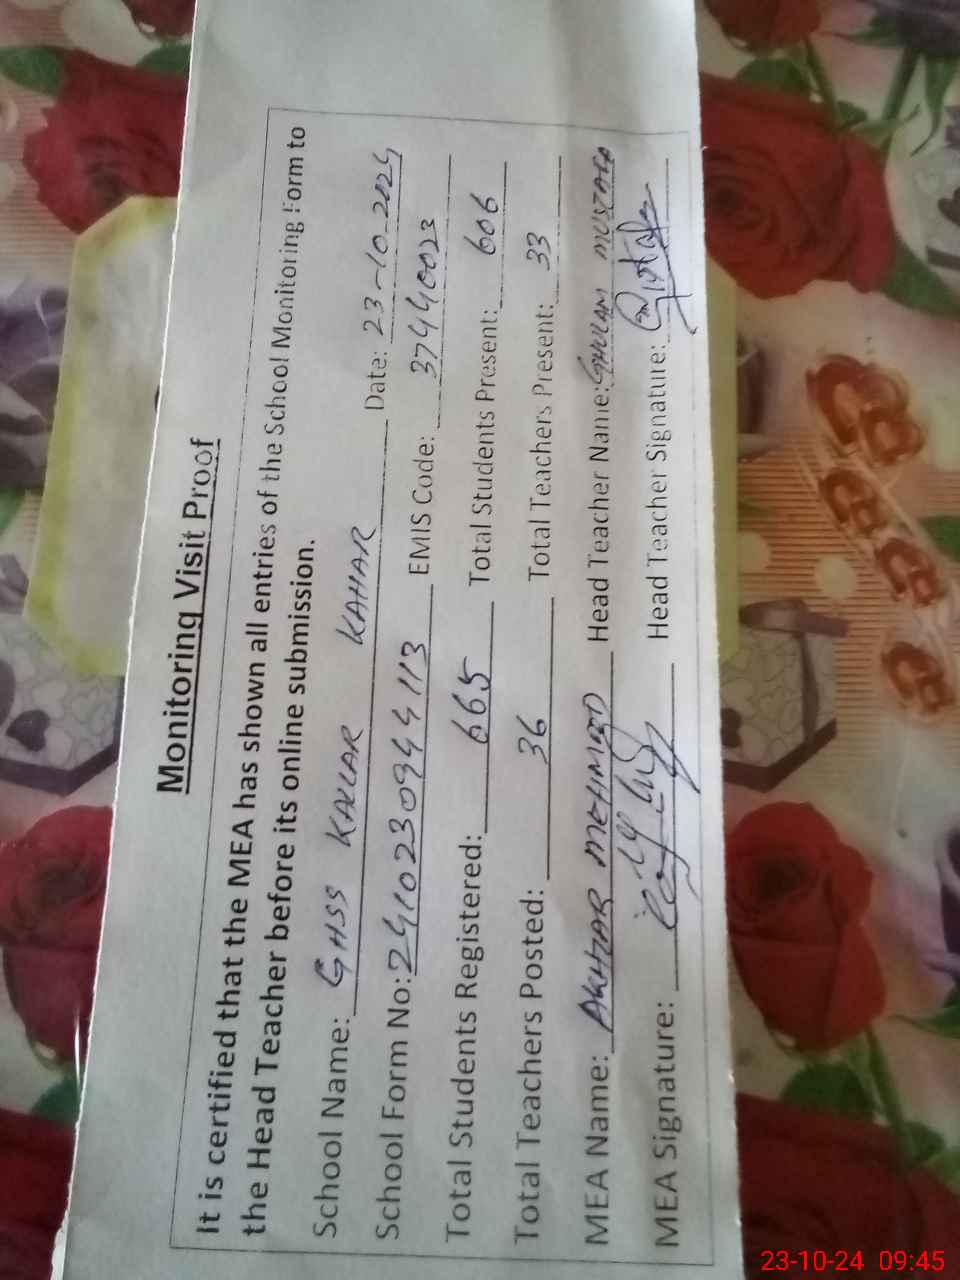 Monitoring Visit Proof
It is certified that the MEA has shown all entries of the School Monitoring Form to
the Head Teacher before its online submission.
School Name: GHSS KALLAR KAHAR Date: 23-10-2024
School Form No: 2410230944113 EMIS Code: 37440023
Total Students Registered: 665 Total Students Present: 606
Total Teachers Posted: 36 Total Teachers Present: 33
MEA Name: AKHTAR MEHMOOD Head Teacher Name: GHULAM MUSTAFA
MEA Signature: Head Teacher Signature:
23-10-24 09:45